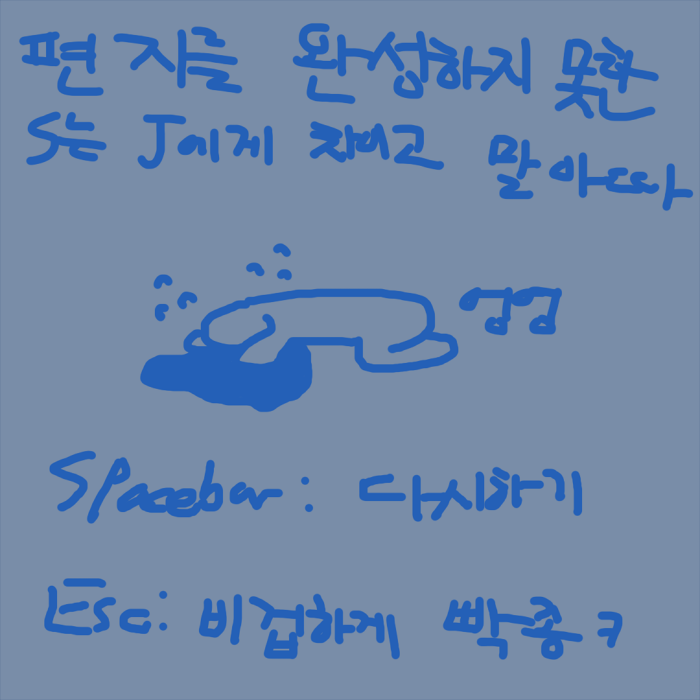 편지를 완성하지 못한
S는 J에게 차이고 말아따
엉엉
Spacebar: 다시하기
Esc: 비겁하게 빡종ㅋ